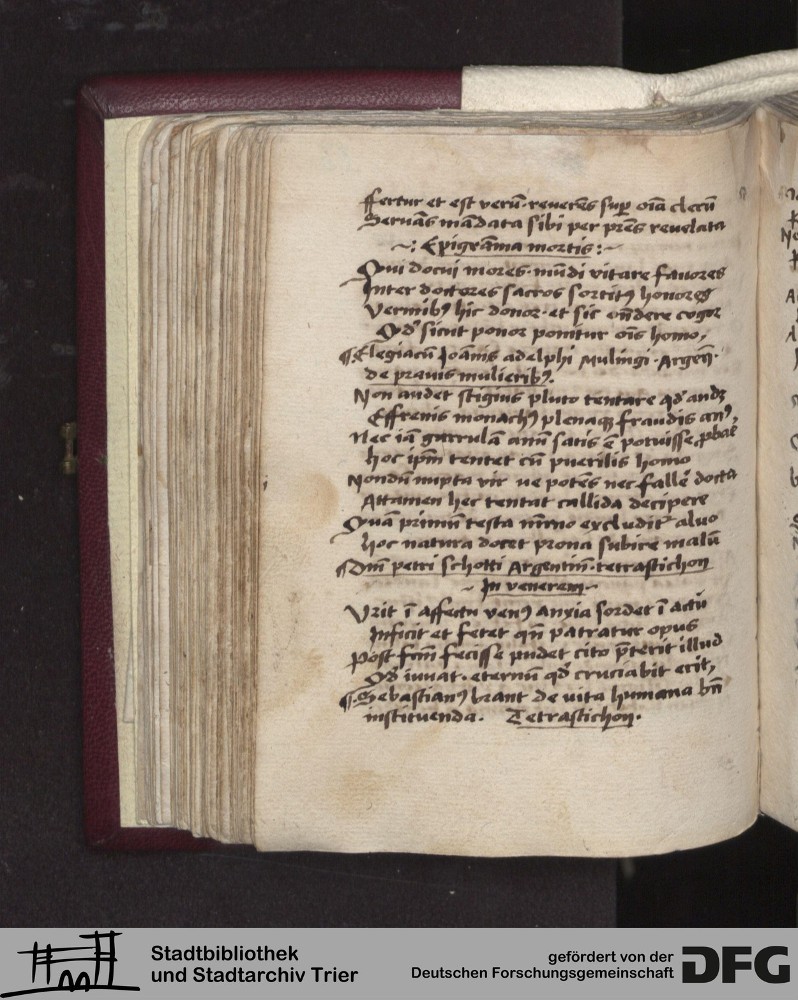 ffertur et est verũ reverẽs sup oĩa clerũ
Servãs mãdata sibi per prẽs revelata
~: Epigrãma mortis :~
Qui docui mores mũdi vitare favores
Inter doctores sacros sortitꝰ honores
Vermibꝰ hic donor et sic oñdere cogor
Qđ sicut ponor ponitur oĩs homo,
¶ Elegiacũ Ioãnis adelphi Mulingi Argeñ.
de pravis mulieribꝰ.
Non audet stigius pluto tentare qđ audꝫ
Effrenis monachꝰ plenaqꝫ fraudis anꝰ,
Nec iã garrulã anũ satis ẽ potuisse ꝓbat
hoc ipm̃ tentet cũ puerilis homo
Nondũ nupta vir ve potẽs nec fallẽ docta
Attamen hec tentat callida decipere
Quã primũ testa m̃rno excludit alvo
hoc natura docet prona subire malũ
¶ Dm̃ petri schotti Argentiñ. tetrastichon
~ In venerem ~
Vrit ĩ affectu venꝰ anxia sordet ĩ actu
Inficit et fetet qñ patratur opus
Post fcm̃ fecisse pudet cito p̃terit illud
Qđ iuvat. eternũ qđ cruciabit erit,
¶ Sebastianꝰ brant de vita humana bñ
instituenda. Tetrastichon.
Stadtbibliothek
und Stadtarchiv Trier
gefördert von der
Deutschen Forschungsgemeinschaft
DFG